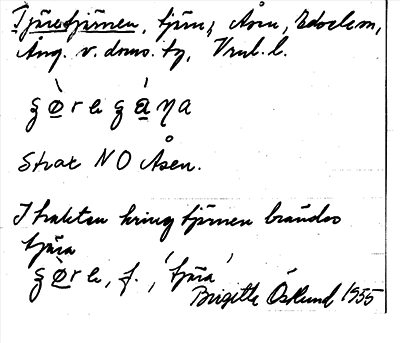 Tjäretjärnen, tjärn, Åsen, Edvlem,
Ång. v. doms. tg, Vrml. l.
ʒø̀reʒa̍ŋa
Strax NO Åsen.
I trakten kring tjärnen brändes
tjära
ʒøre, f., 'tjära'
Birgitta Östlund 1955